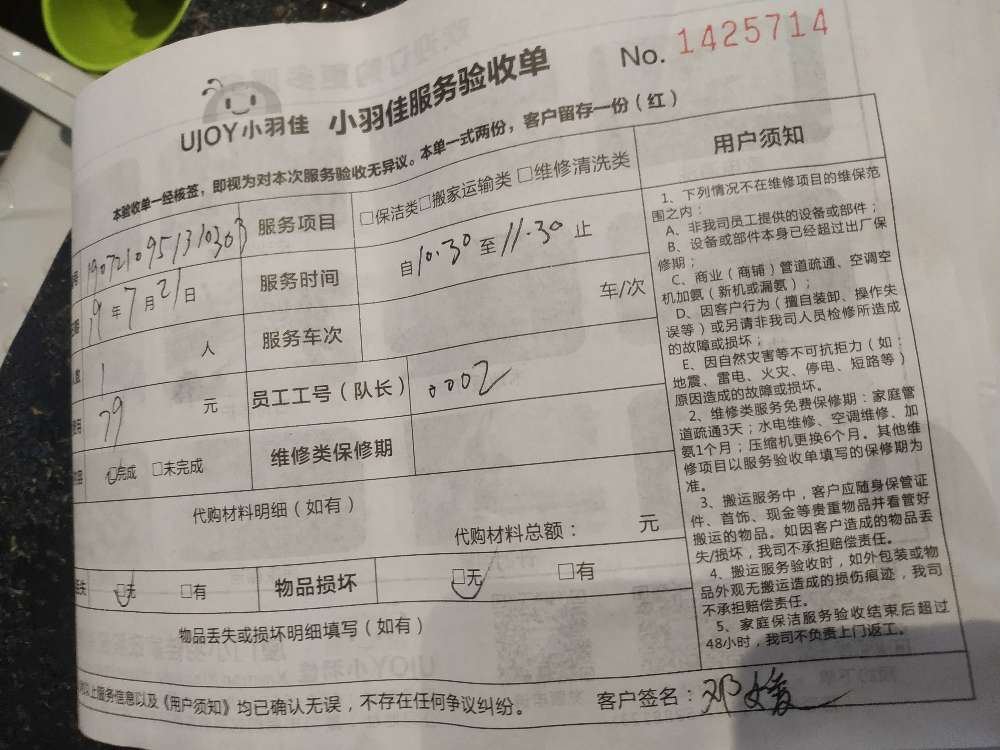 No. 1425714
UJOY小羽佳 小羽佳服务验收单
本验收单一经核签，即视为对本次服务验收无异议。本单一式两份，客户留存一份（红）
号 1907210951310303 服务项目 □保洁类□搬家运输类 □维修清洗类
19年7月21日 服务时间 自10.30至11.30止
1 人 服务车次 车/次
79 元 员工工号（队长） 0002
□完成 □未完成 维修类保修期
代购材料明细（如有）
代购材料总额： 元
□无 □有 物品损坏 □无 □有
物品丢失或损坏明细填写（如有）
以上服务信息以及《用户须知》均已确认无误，不存在任何争议纠纷。 客户签名：邓媛
用户须知
1、下列情况不在维修项目的维保范
围之内：
A、非我司员工提供的设备或部件；
B、设备或部件本身已经超过出厂保
修期；
C、商业（商铺）管道疏通、空调空
机加氨（新机或漏氨）；
D、因客户行为（擅自装卸、操作失
误等）或另请非我司人员检修所造成
的故障或损坏；
E、因自然灾害等不可抗拒力（如：
地震、雷电、火灾、停电、短路等）
原因造成的故障或损坏。
2、维修类服务免费保修期：家庭管
道疏通3天；水电维修、空调维修、加
氨1个月；压缩机更换6个月。其他维
修项目以服务验收单填写的保修期为
准。
3、搬运服务中，客户应随身保管证
件、首饰、现金等贵重物品并看管好
搬运的物品。如因客户造成的物品丢
失/损坏，我司不承担赔偿责任。
4、搬运服务验收时，如外包装或物
品外观无搬运造成的损伤痕迹，我司
不承担赔偿责任。
5、家庭保洁服务验收结束后超过
48小时，我司不负责上门返工。